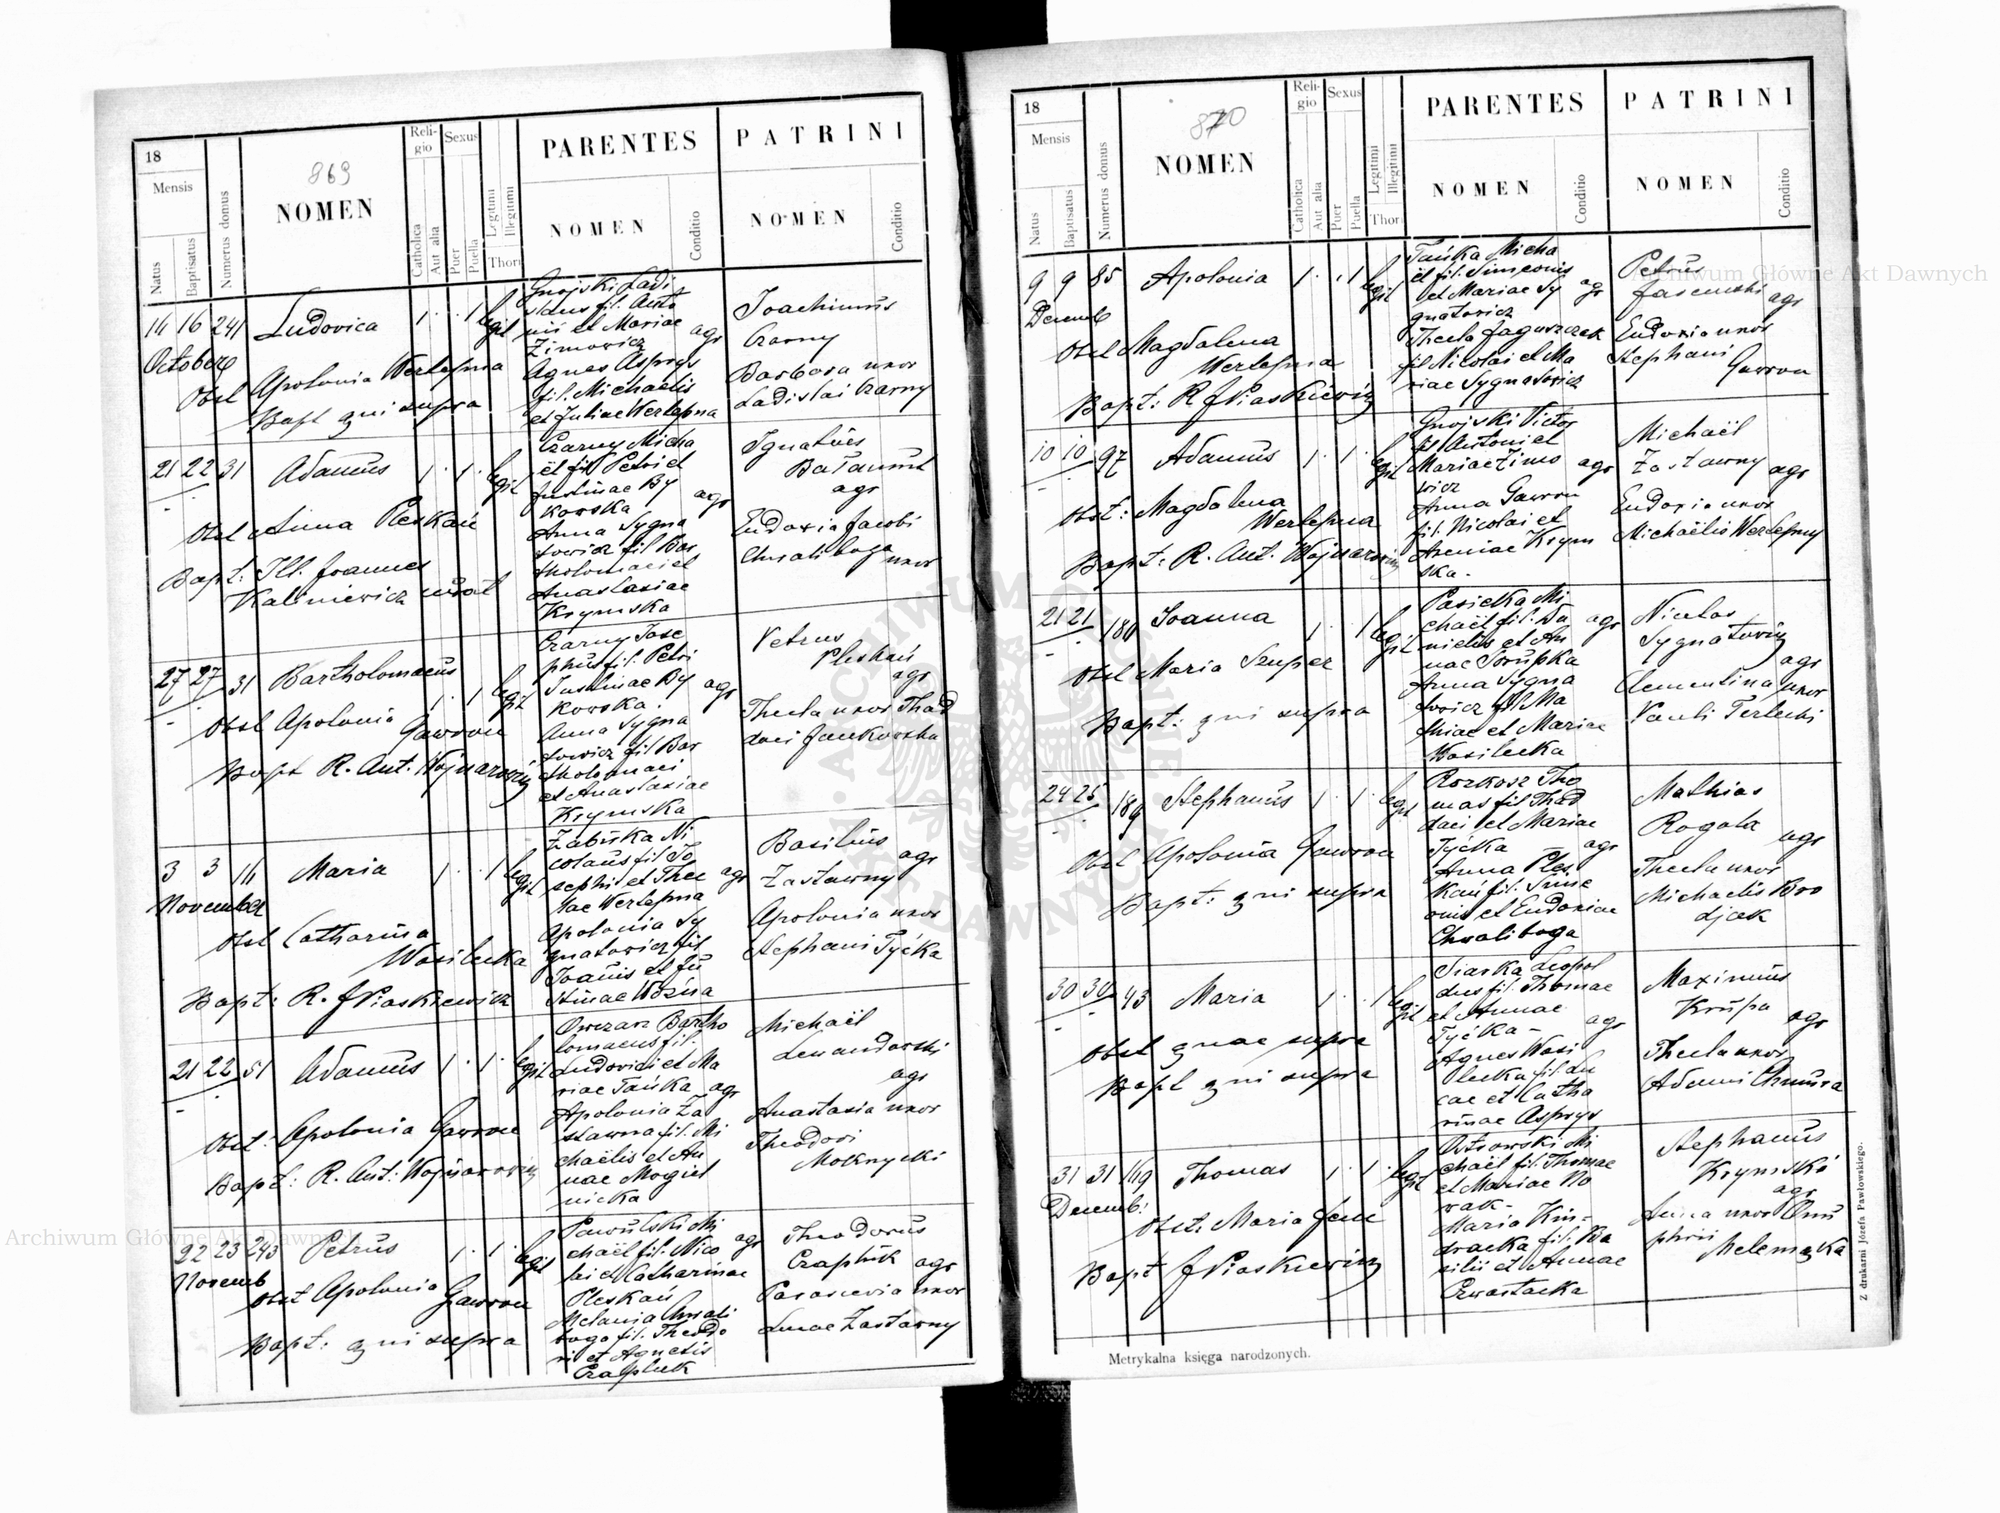 18
Mensis
Natus
Baptisatus
Numerus domus
869
NOMEN
Religio
Catholica
Aut alia
Sexus
Puer
Puella
Legitimi
Illegitimi
Thori
PARENTES
NOMEN
Conditio
PATRINI
NOMEN
Conditio
14 16 241 Ludovica 1 1 legit
October
Obst Apolonia Werlepna
Bapt qui supra
Gnojski Ladi
slaus fil. Anto
nii et Mariae
Zimowicz agr
Agnes Asprys
fil. Michaelis
et Juliae Werlepna
Joachimus
Czarny
Barbara uxor
Ladislai Czarny
21 22 31 Adamus 1 1 legit
Obst Anna Pleskań
Bapt: Ill. Joannes
Kaliniewicz
Czarny Micha
ël fil Petri et
Justinae By
kowska agr
Anna Sygna
towicz fil Bar
tholomaei et
Anastasiae
Krymska
Ignatius
agr
Eudoxia Jacobi
Chwaliboga uxor
27 27 31 Bartholomaeus 1 1 legit
Obst Apolonia
Gawron
Bapt R. Ant. Wojnarowicz
Czarny Jose
phus fil. Petri
Justinae By agr
kowska.
Anna Sygna
towicz fil Bar
tholomaei
et Anastasiae
Krymska
Petrus
Pleskań
agr
Thecla uxor Thad
daei Jankowska
3 3 Maria 1 1 legit
November
Obst Catharina
Wasilecka
Bapt: R. J Piaskiewicz
Zabuska Ni
colaus fil Jo
sephi et Thec agr
lae Werlepna
Apolonia Sy
gnatowicz fil
Joanis et Ju
stinae Woźna
Basilius
Zastawny agr
Apolonia uxor
Stephani Tyćka
21 22 51 Adamus 1 1 legit
Obst: Apolonia Gawron
Bapt: R. Ant: Wojnarowicz
Owczar Bartho
lomaeus fil.
Ludovici et Ma
riae Tańka agr
Apolonia Za
stawna fil. Mi
chaëlis et An
nae Mogiel
nicka
Michaël
Lewandowski
agr
Anastasia uxor
Theodori
Mokrycki
22 23 243 Petrus 1 1 legit
Novemb
Obst Apolonia
Gawron
Bapt: qui supra
Pawulski Mi
chaël fil. Nico agr
lai et Catharinae
Pleskań
Melania Chwali
boga fil. Theodo
ri et Agnetis
Czapluk
Theodorus
Czapluk agr
Parascevia uxor
Lucae Zastawny
18
Mensis
Natus
Baptisatus
Numerus domus
870
NOMEN
Religio
Catholica
Aut alia
Sexus
Puer
Puella
Legitimi
Illegitimi
Thori
PARENTES
NOMEN
Conditio
PATRINI
NOMEN
Conditio
9 9 85 Apolonia 1 1 legit
Decemb
Obst Magdalena
Werlepna
Bapt: R J Piaskiewicz
Tańka Micha
ël fil. Simeonis
et Mariae Sy agr
gnatowicz
Thecla Jaguszczak
fil Nicolai et Ma
riae Sygnatowicz
Petrus
agr
Eudoxia uxor
Stephani
Gawron
10 10 97 Adamus 1 1 legit
Obst: Magdalena
Werlepna
Bapt: R. Ant. Wojnarowicz
Gnojski Victor
fil Antoni et
Mariae Zimo agr
wicz
Anna Gawron
fil. Nicolai et
Xeniae Krym
ska.
Michaël
Zastawny agr
Eudoxia uxor
Michaëlis Werlepny
21 21 Joanna 1 1 legit
Obst Maria Szuper
Bapt: qui supra
Pasieka Mi
chaël fil. Da agr
nielis et An
nae Skrupka
Anna Sygna
towicz fil Ma
thiae et Mariae
Wasilecka
Nicolas
Sygnatowicz
agr
Clementina uxor
Pauli Terlecki
24 25 189 Stephanus 1 1 legit
Obst Apolonia Gawron
Bapt: qui supra
Rozkosz Tho
mas fil Thad
daei et Mariae
Tyćka agr
Anna Ples
kań fil. Sime
onis et Eudoxiae
Chwaliboga
Mathias
Rogala agr
Thecla uxor
Michaelis Bro
djak
30 30 43 Maria 1 1 legit
Obst quae supra
Bapt qui supra
Siarka Leopol
dus fil. Thomae
et Annae agr
Tyćka -
Agnes Wasi
lecka fil. Lu
cae et Catha
rinae Asprys
Maximus
Krupa agr
Thecla uxor
Adami Chmura
31 31 149 Thomas 1 1 legit
Decemb:
Obst: Maria
Bapt J Piaskiewicz
Ostrowski Mi
chaël fil. Thomae
et Mariae No
wak -
Maria Kin-
dracka fil. Ba
silii et Annae
Czwartacka
Stephanus
Krymski
agr
Anna uxor Onu
phrii
Melemazka
Metrykalna księga narodzonych.
Z drukarni Józefa Pawłowskiego.
Archiwum Główne Akt Dawnych
Archiwum Główne Akt Dawnych
ARCHIWUM GŁÓWNE AKT DAWNYCH